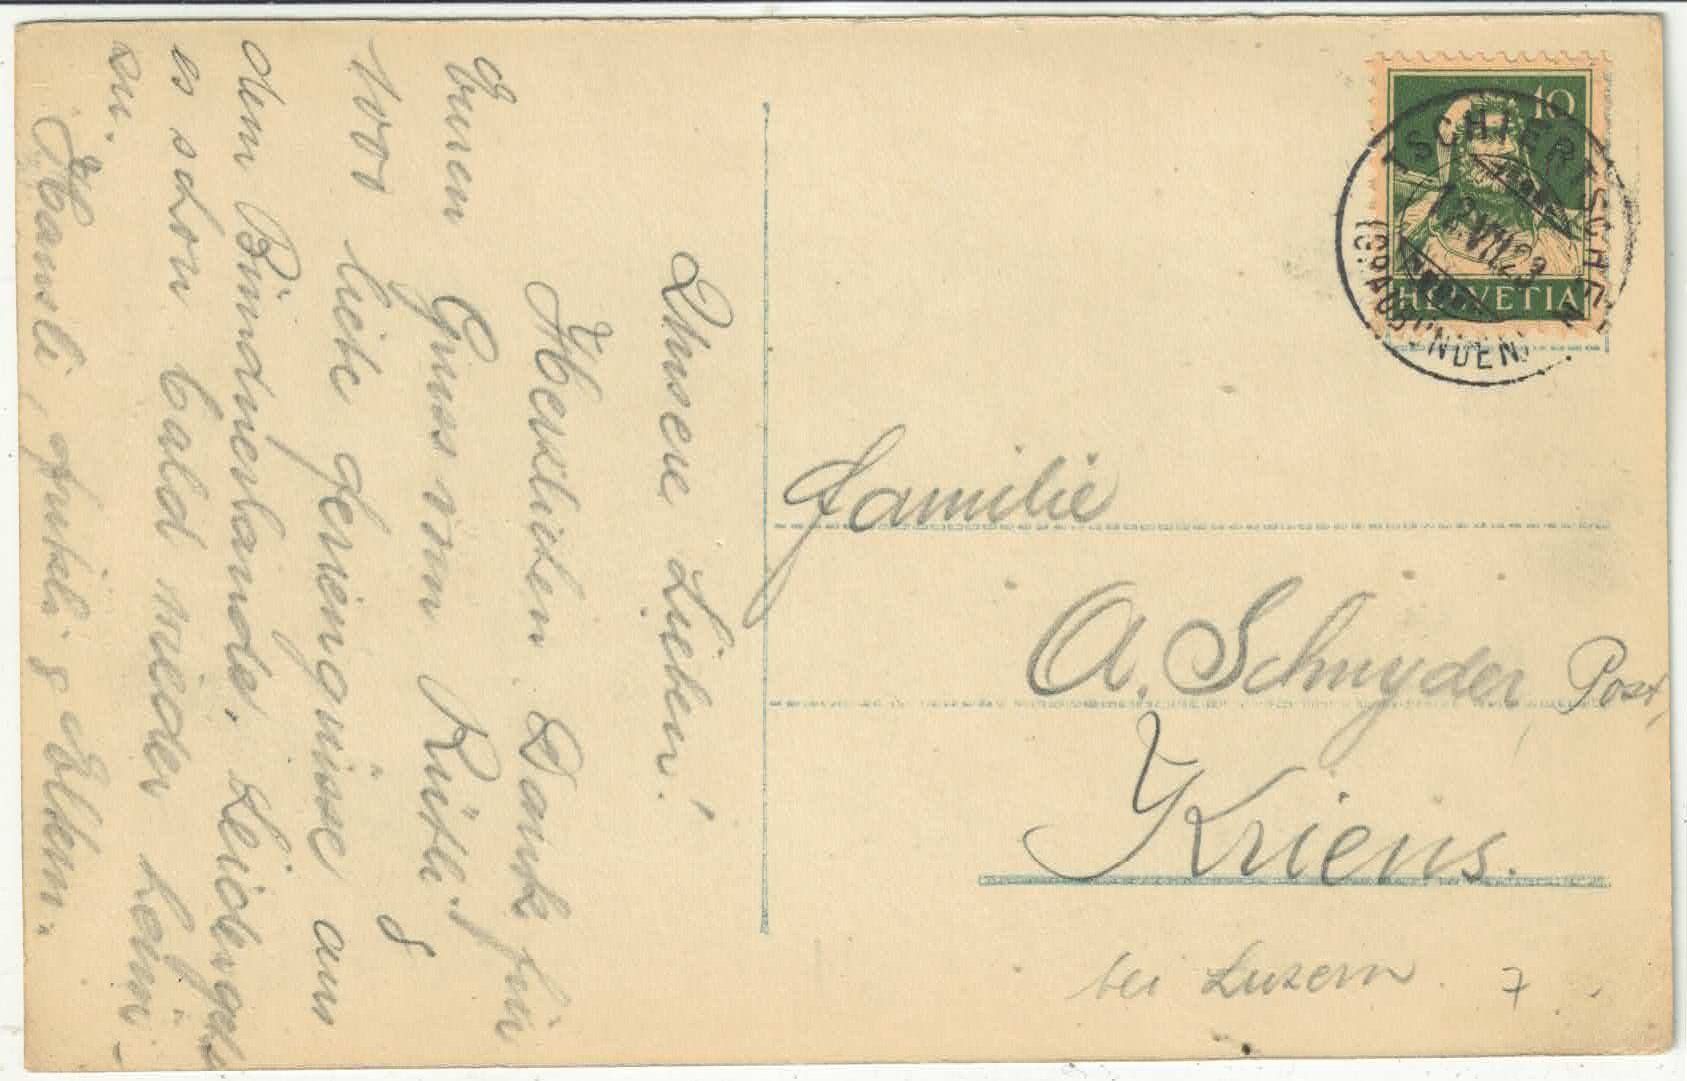 Unsere Lieben!
Herzlichen Dank für
Euren Gruss vom Rütli. &
1000 liebe Feriengrüsse aus
dem Bündnerlande. Leider geht
es schon bald wieder heim-
zu.
Hansli, & Eltern.
10
HELVETIA
TSCHIERTSCHEN
(GRAUBÜNDEN)
Familie
A. Schnyder, Post,
Kriens.
bei Luzern. 7